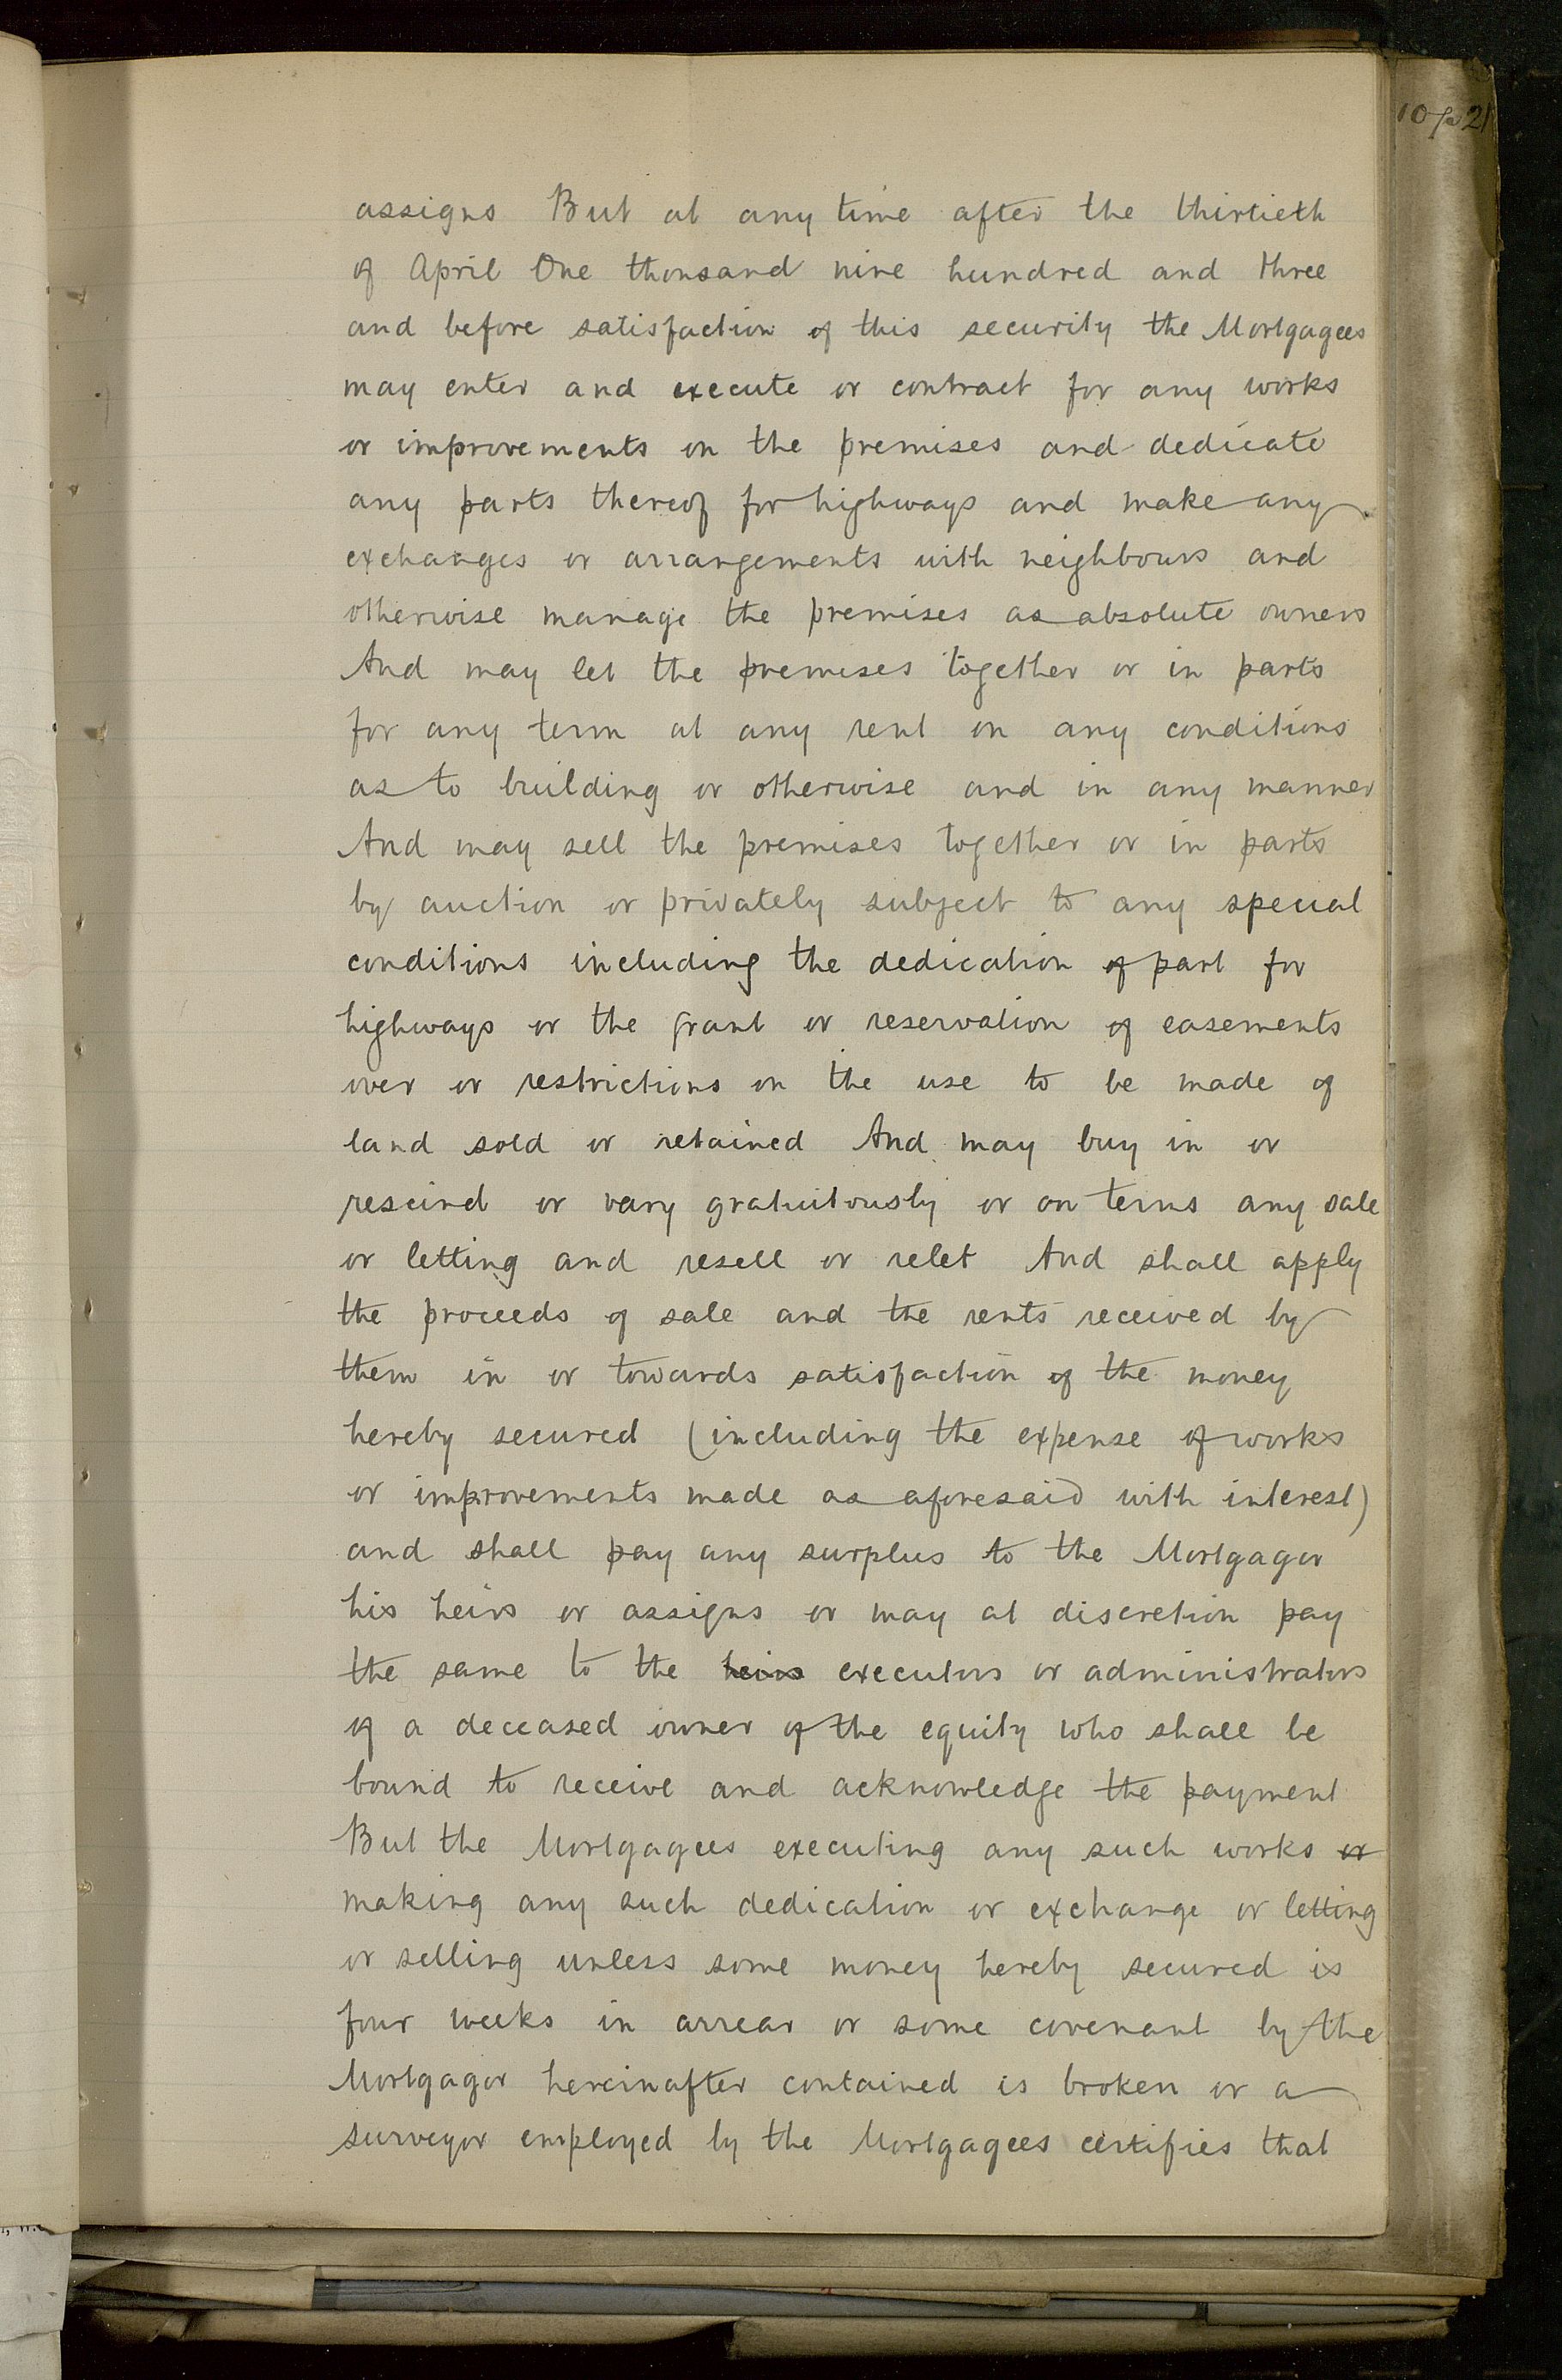 assigns But at any time after the thirtieth
of April One thousand nine hundred and three
and before satisfaction of this security the Mortgagees
may enter and execute or contract for any works
or improvements on the premises and dedicate
any parts thereof for highways and make any
exchanges or arrangements with neighbours and
otherwise manage the premises as absolute owners
And may let the premises together or in parts
for any term at any rent on any conditions
as to building or otherwise and in any manner
And may sell the premises together or in parts
by auction or privately subject to any special
conditions including the dedication of part for
highways or the grant or reservation of easements
over or restrictions on the use to be made of
land sold or retained And may buy in or
rescind or vary gratuitously or on terms any sale
or letting and resell or relet And shall apply
the proceeds of sale and the rents received by
them in or towards satisfaction of the money
hereby secured (including the expense of works
or improvements made as aforesaid with interest)
and shall pay any surplus to the Mortgagor
his heirs or assigns or may at discretion pay
the same to the heirs executors or administrators
of a deceased owner of the equity who shall be
bound to receive and acknowledge the payment
But the Mortgagees executing any such works or
making any such dedication or exchange or letting
or selling unless some money hereby secured is
four weeks in arrear or some covenant by the
Mortgagor hereinafter contained is broken or a
surveyor employed by the Mortgagees certifies that